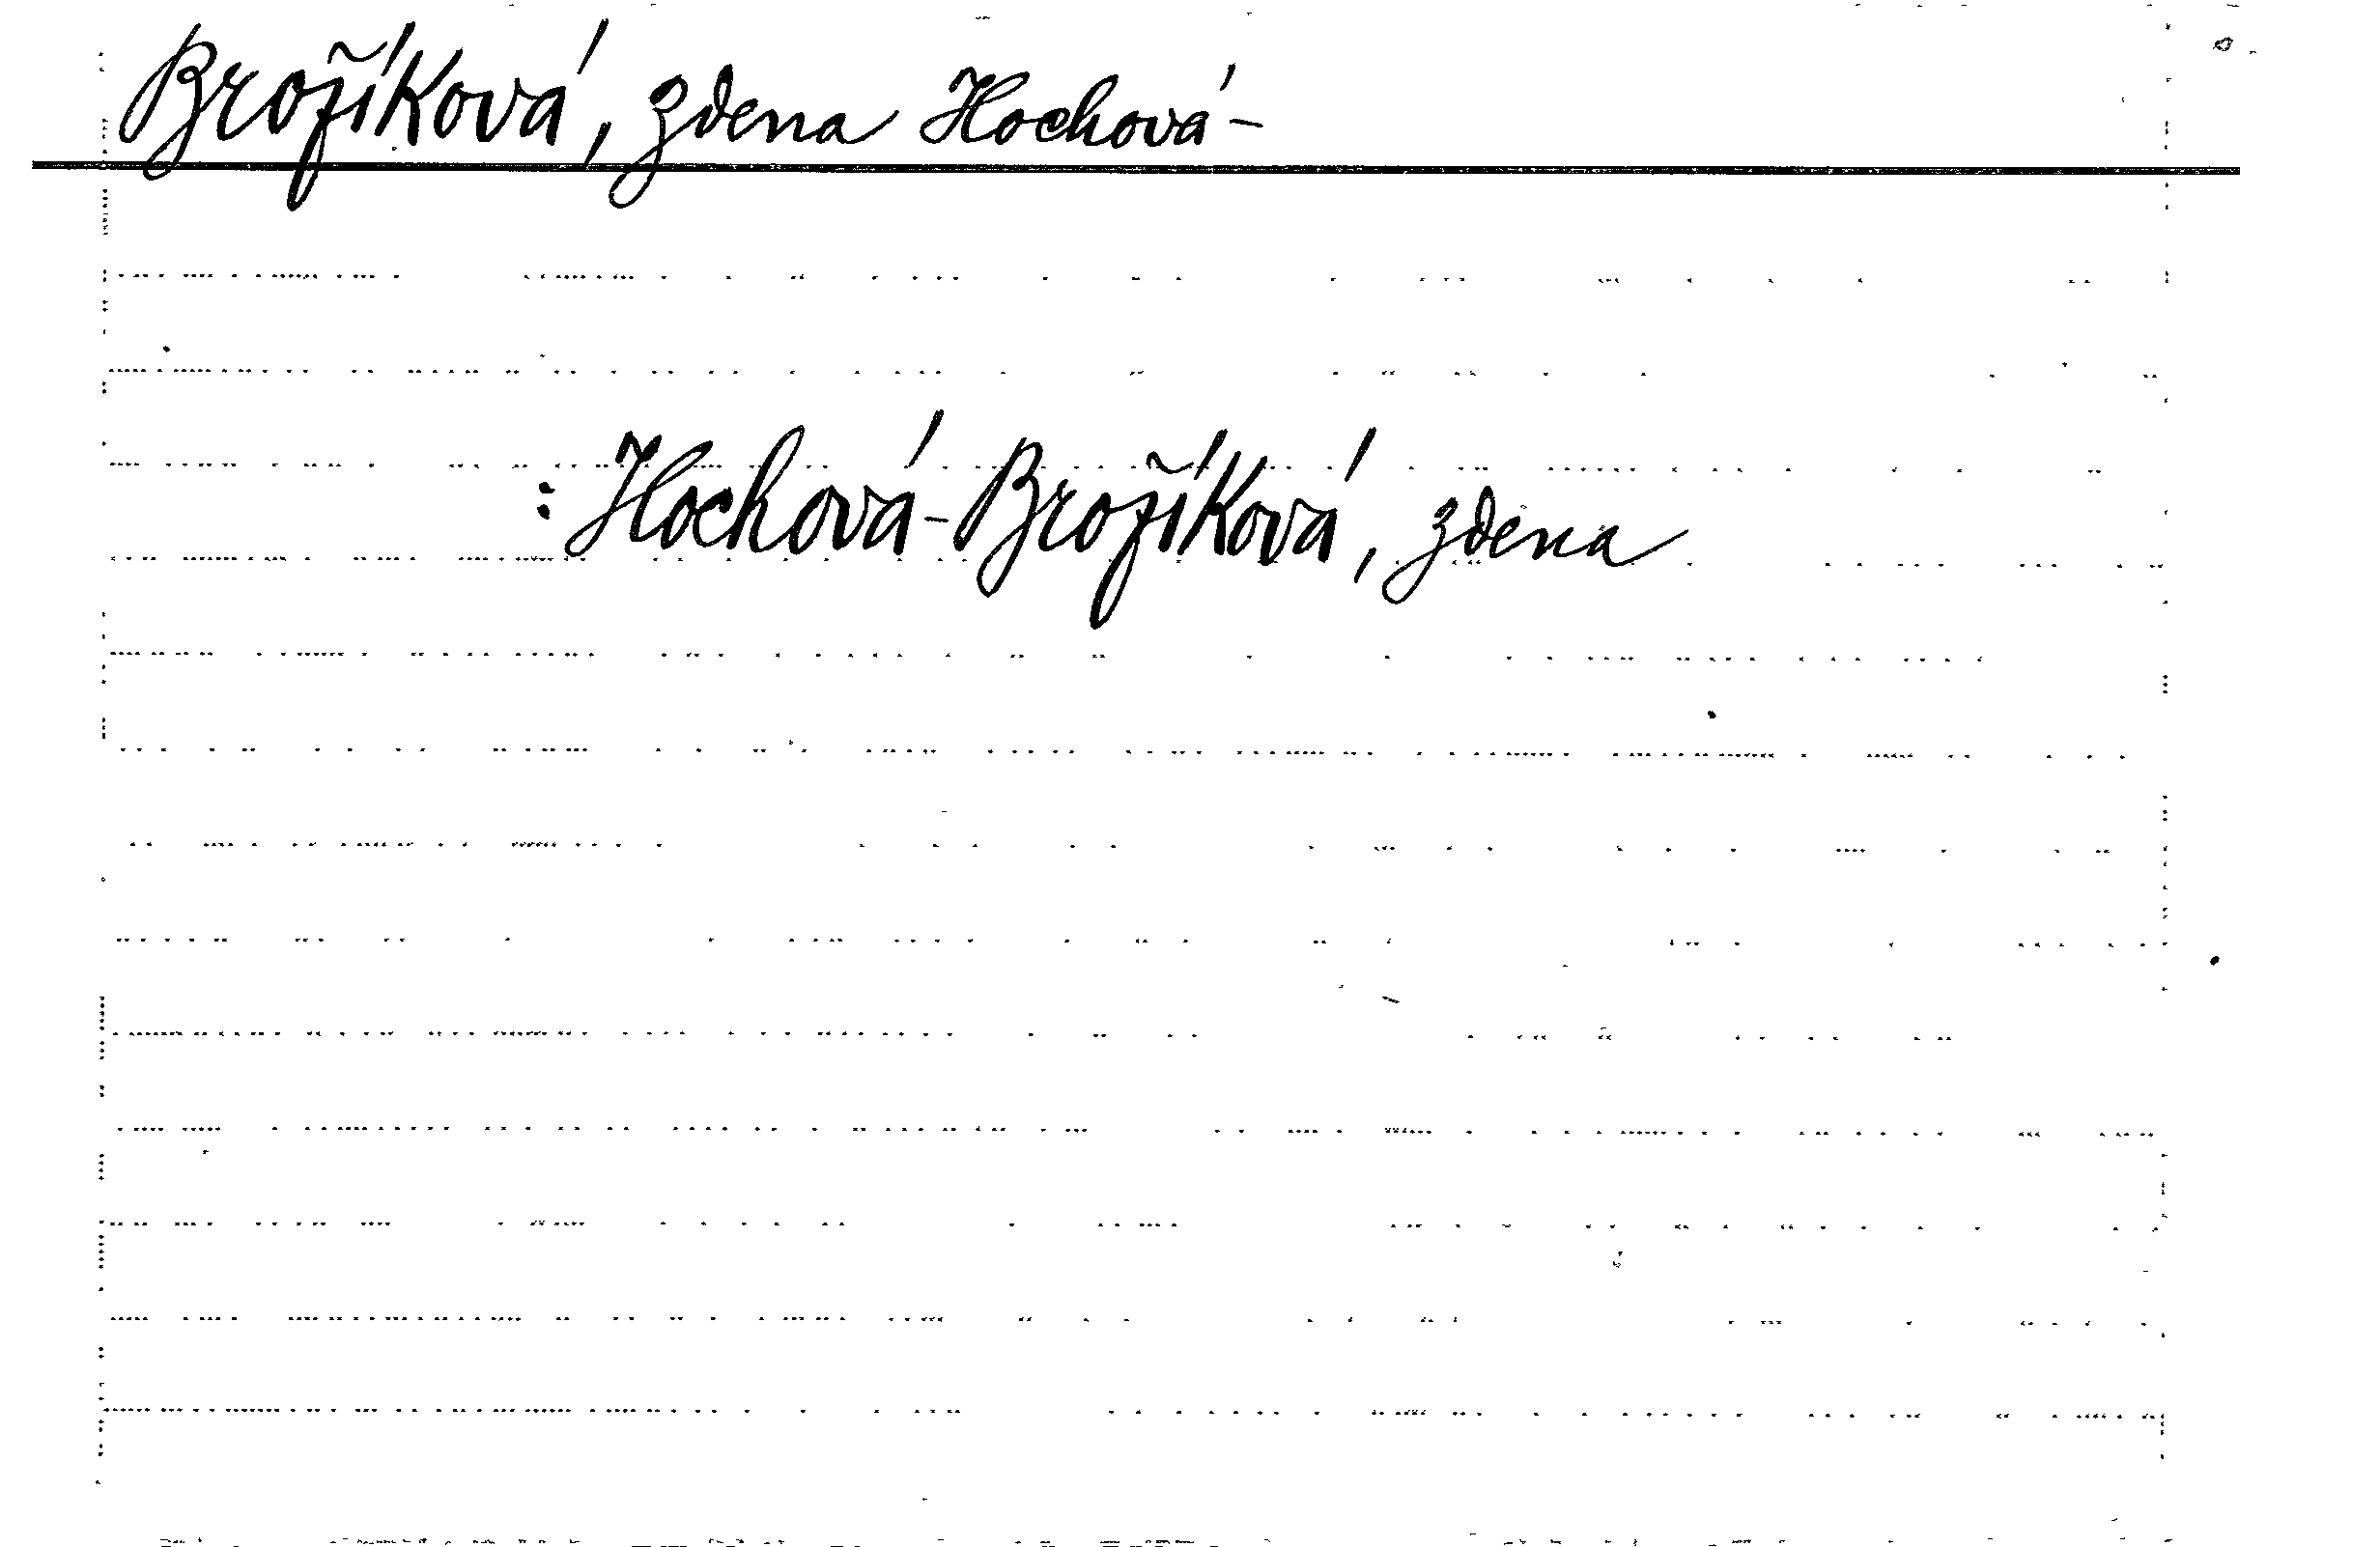 Brožíková, Zdena Hochová-
: Hochová-Brožíková, Zdena